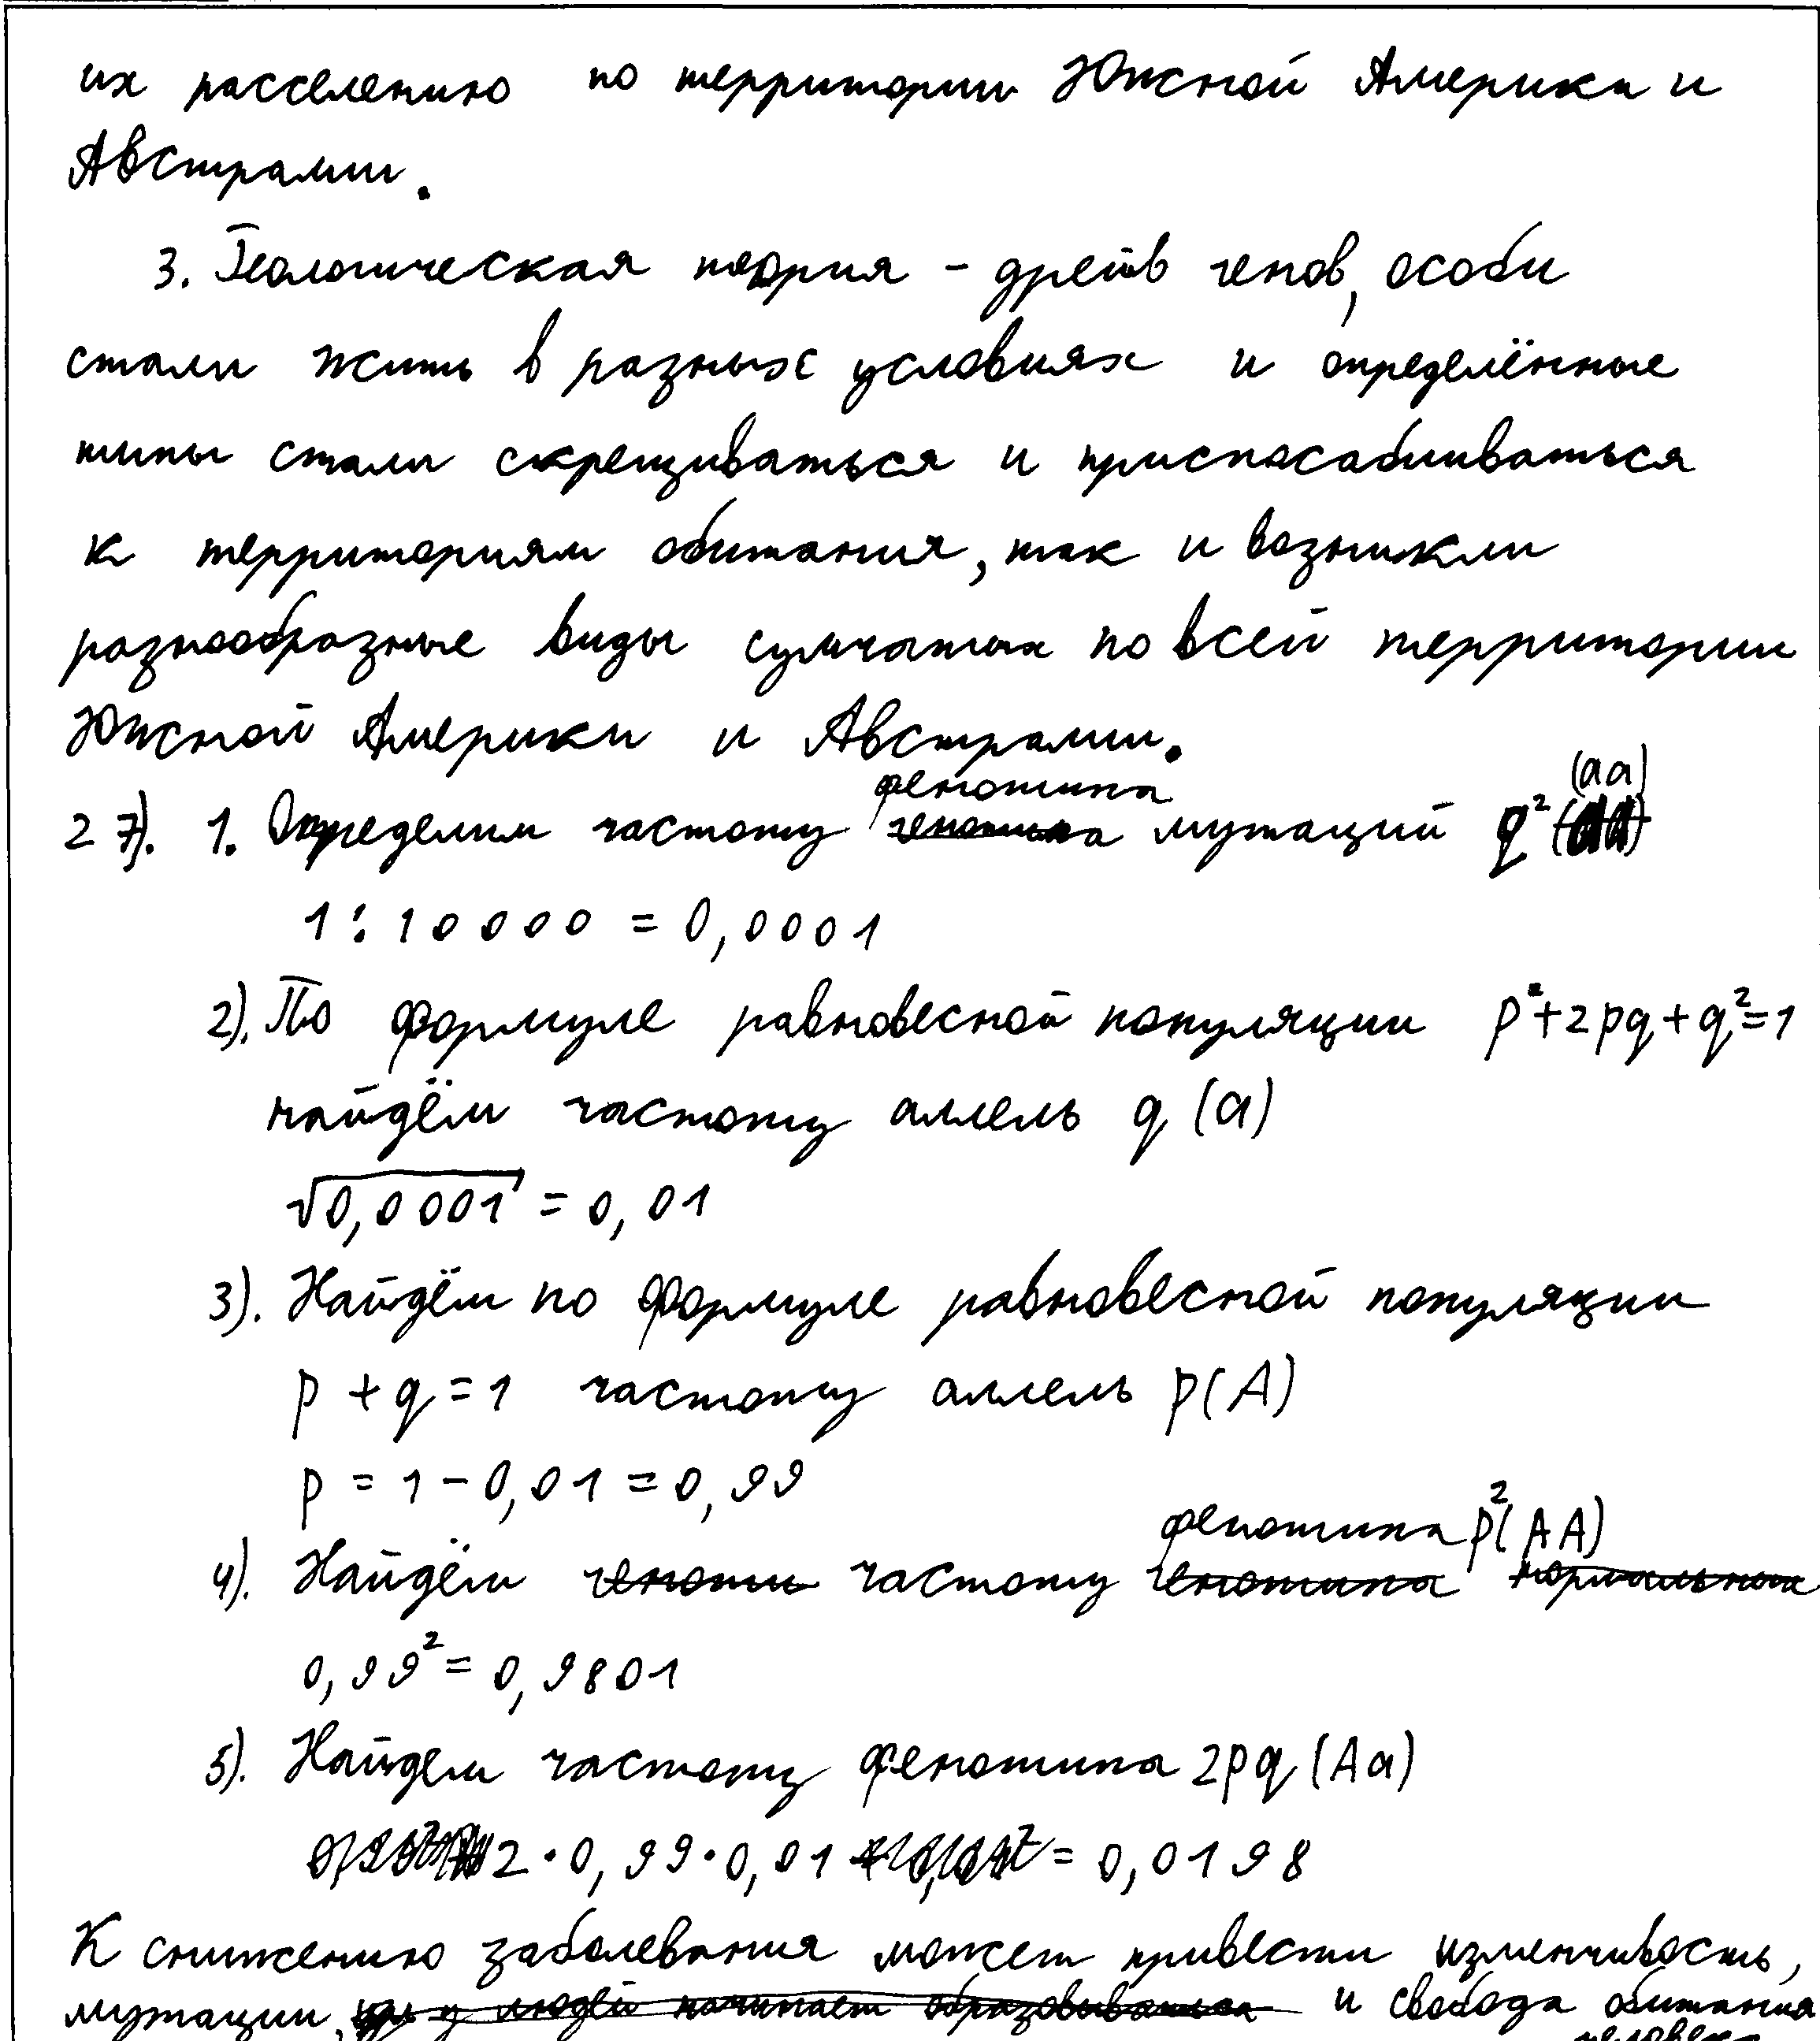 их расселению по территории Южной Америка и
Австралии.
3. Геологическая теория - дрейв генов, особи
стали жить в разных условиях и определённые
типы стали скрещиваться и приспосабливаться
к территориям обитания, так и возникли
разнообразные виды сумчатых по всей территории
Южной Америки и Австралии.
фенотипа (aa)
27). 1. Определим частоту генотипа мутаций q²
1:10000 = 0,0001
2). По формуле равновесной популяции p²+2pq+q²=1
найдём частоту аллель q (a)
√0,0001 = 0,01
3). Найдём по формуле равновесной популяции
p + q = 1 частоту аллель p(A)
p = 1 - 0,01 = 0,99
фенотипа p²(AA)
4). Найдём геноти частоту генотипа нормальных
0,99² = 0,9801
5). Найдем частоту фенотипа 2pq (Aa)
2·0,99·0,01 = 0,0198
К снижению заболевания может привести изменчивость,
мутации, у людей начинает образовываться и свобода обитания
человека